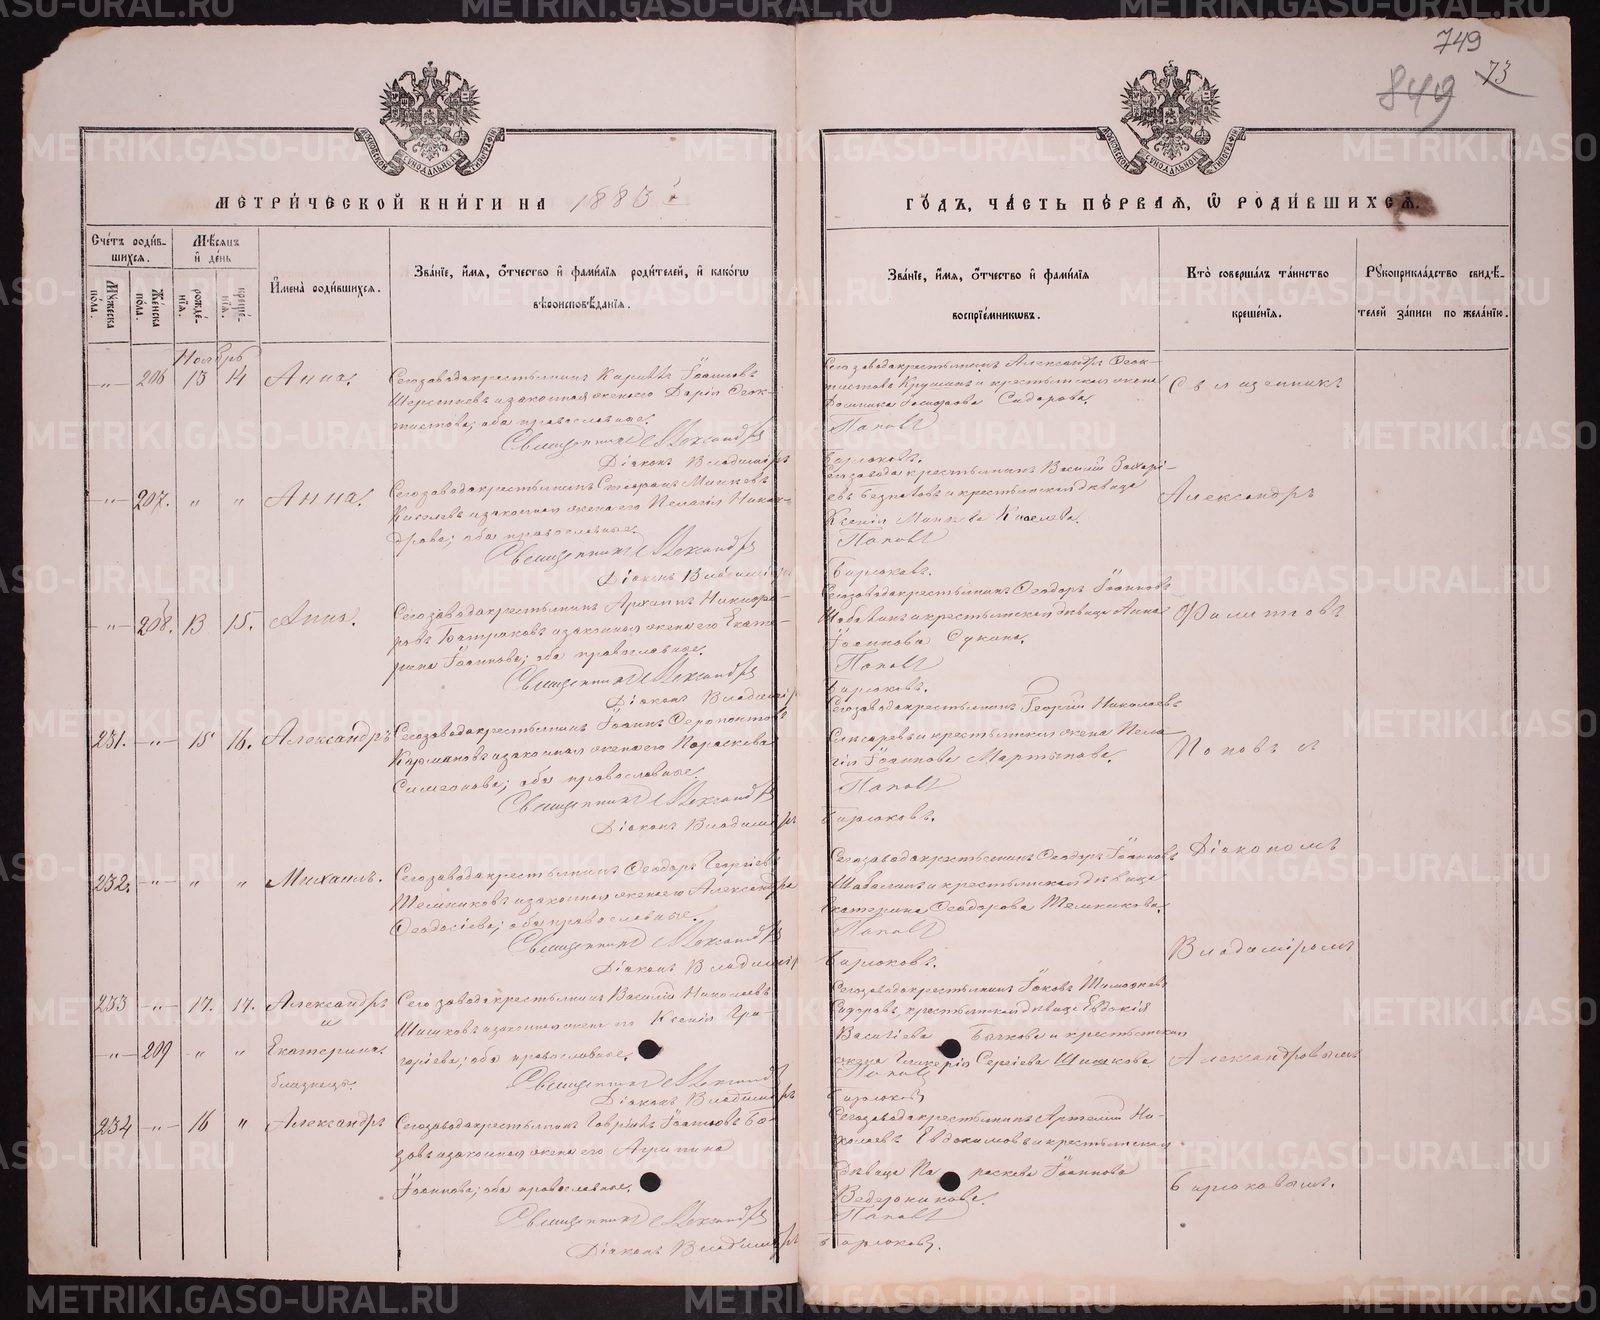 749
849 73
МОСКОВСКОЙ СѴНОДАЛЬНОЙ ТИПОГРАФІИ
МОСКОВСКОЙ СѴНОДАЛЬНОЙ ТИПОГРАФІИ
МЕТРИ́ЧЕСКОЙ КНИ́ГИ НА 1883й
ГО́ДЪ, ЧА́СТЬ ПЕ́РВАЯ, Ѡ РОДИ́ВШИХСЯ.
Сче́тъ роди́вшихся.
Му́жеска пола.
Же́нска по́ла.
Мѣ́сяцъ и҆ де́нь
рожде́нїя.
креще́нїя.
И҆мена̀ роди́вшихся.
Зва́нїе, и҆́мя, ѻ҆́тчество и҆ фами́лїя роди́телей, и҆ како́гѡ вѣроисповѣ́данїя.
Зва́нїе, и҆́мя, ѻ҆́тчество и҆ фами́лїя воспрїе́мникѡвъ.
Кто̀ соверша́лъ та́инство креще́нїя.
Рꙋкоприкла́дство свидѣ́телей за́писи по жела́нїю.
Ноябрь
-„- 206 13 14 Анна.
Сегозавода крестьянинъ Кириллъ Іоанновъ
Шерстневъ и законная жена его Дарія Ѳеок-
тистова; оба православные.
Священникъ Александръ
Діаконъ Владиміръ
Сего завода крестьянинъ Александръ Ѳеок-
тистовъ и крестьянская жена
Сидорова.
Поповъ
Бирюковъ.
Священникъ
-„- 207. „ „ Анна.
Сегозавода крестьянинъ Стефанъ Минѣевъ
Киселевъ и законная жена его Пелагія Никан-
дрова; оба православные.
Священникъ Александръ
Діаконъ Владиміръ
Сегозавода крестьянинъ Василій Захарі-
евъ и крестьянская дѣвица
Ксенія Минѣева Киселева.
Поповъ
Бирюковъ.
Александръ
-„- 208. 13 15. Анна.
Сегозавода крестьянинъ Архипъ Никифо-
ровъ и законная жена его Екате-
рина Іоаннова; оба православные.
Священникъ Александръ
Діаконъ Владиміръ
Сегозавода крестьянинъ Ѳеодоръ Іоанновъ
и крестьянская дѣвица Анна
Іоаннова Сукина.
Поповъ
Бирюковъ.
231. -„- 15 16. Александръ
Сегозавода крестьянинъ Іоаннъ Ѳерапонтовъ
и законная жена его Параскева
Симеонова; оба православные.
Священникъ Александръ
Діаконъ Владиміръ
Сегозавода крестьянинъ Георгій Николаевъ
и крестьянская жена Пела-
гія Іоаннова Мартынова.
Поповъ
Бирюковъ.
Поповъ и
232. -„- „ „ Михаилъ.
Сегозавода крестьянинъ Ѳеодоръ Георгіевъ
Темниковъ и законная жена его Александра
Ѳеодосіева; оба православные.
Священникъ Александръ
Діаконъ Владиміръ
Сегозавода крестьянинъ Ѳеодоръ Іоанновъ
и крестьянская дѣвица
Екатерина Ѳеодорова Темникова.
Поповъ
Бирюковъ.
Діакономъ
Владиміромъ
233 -„- 17. 17. Александръ
и
-„- 209 -„- „ Екатерина
близнецы.
Сего завода крестьянинъ Василій Николаевъ
Шишковъ и законная жена его Ксенія Гри-
горіева; оба православные.
Священникъ Александръ
Діаконъ Владиміръ
Сегозавода крестьянинъ Іаковъ Тимофеевъ
Сидоровъ, крестьянская дѣвица Евдокія
Василіева Бычкова и крестьянская
жена Гликерія Сергіева Шишкова
Поповъ
Бирюковъ
Александровымъ
234 -„- 16 „ Александръ
Сегозавода крестьянинъ Гавріилъ Іоанновъ Бо-
зовъ и законная жена его Агрипина
Іоаннова; оба православные.
Священникъ Александръ
Діаконъ Владиміръ
Сегозавода крестьянинъ Артемій Ни-
колаевъ Евдокимовъ и крестьянская
дѣвица Параскева Іоаннова
Ведерникова.
Поповъ
Бирюковъ.
Бирюковымъ.
METRIKI.GASO-URAL.RU